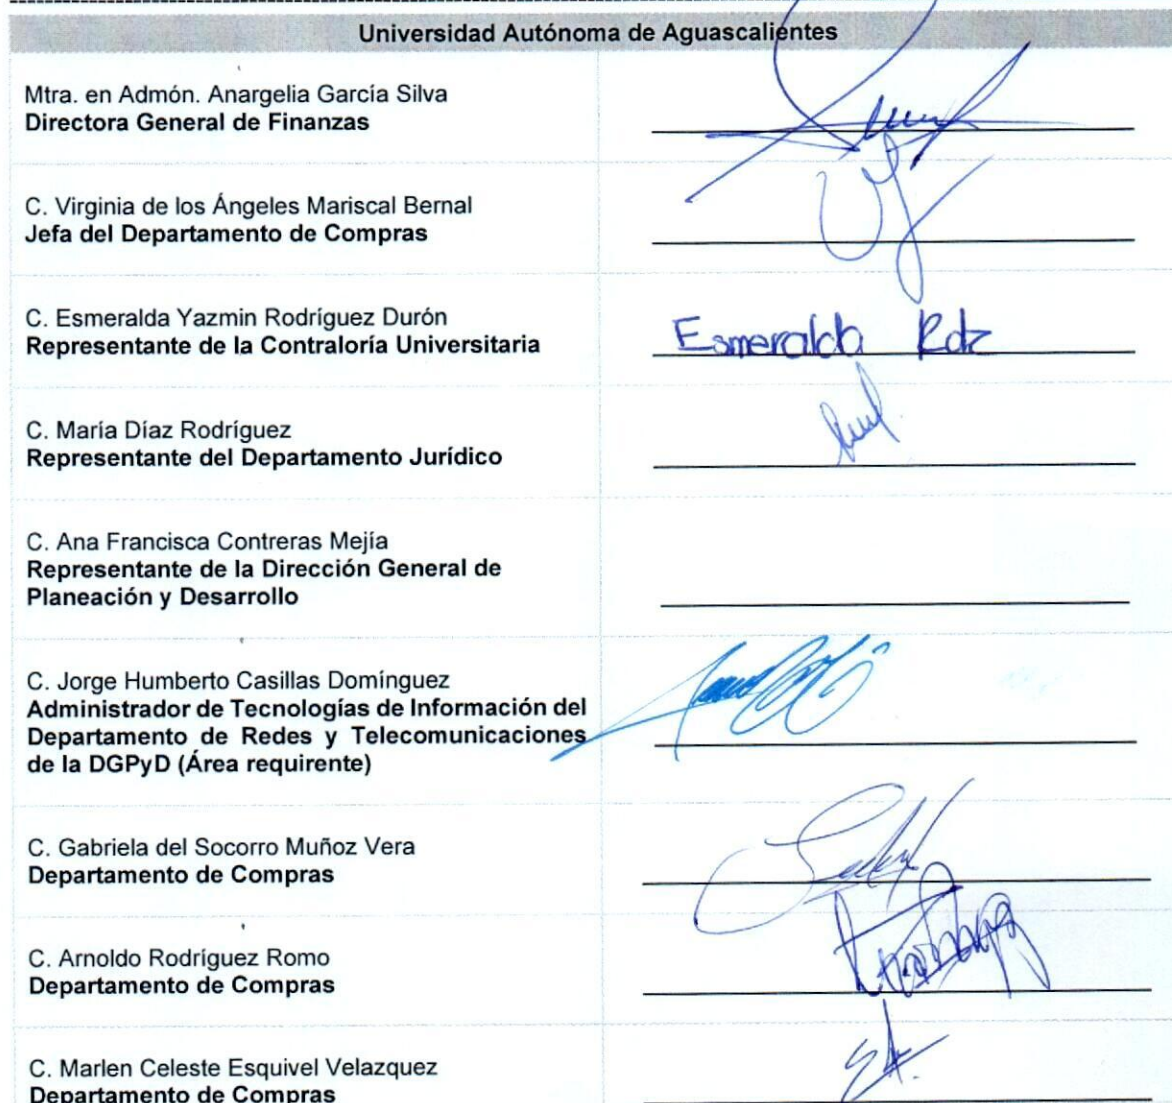 Universidad Autónoma de Aguascalientes
Mtra. en Admón. Anargelia García Silva
Directora General de Finanzas
C. Virginia de los Ángeles Mariscal Bernal
Jefa del Departamento de Compras
C. Esmeralda Yazmin Rodríguez Durón
Representante de la Contraloría Universitaria
Esmeralda Rdz
C. María Díaz Rodríguez
Representante del Departamento Jurídico
C. Ana Francisca Contreras Mejía
Representante de la Dirección General de
Planeación y Desarrollo
C. Jorge Humberto Casillas Domínguez
Administrador de Tecnologías de Información del
Departamento de Redes y Telecomunicaciones
de la DGPyD (Área requirente)
C. Gabriela del Socorro Muñoz Vera
Departamento de Compras
C. Arnoldo Rodríguez Romo
Departamento de Compras
C. Marlen Celeste Esquivel Velazquez
Departamento de Compras